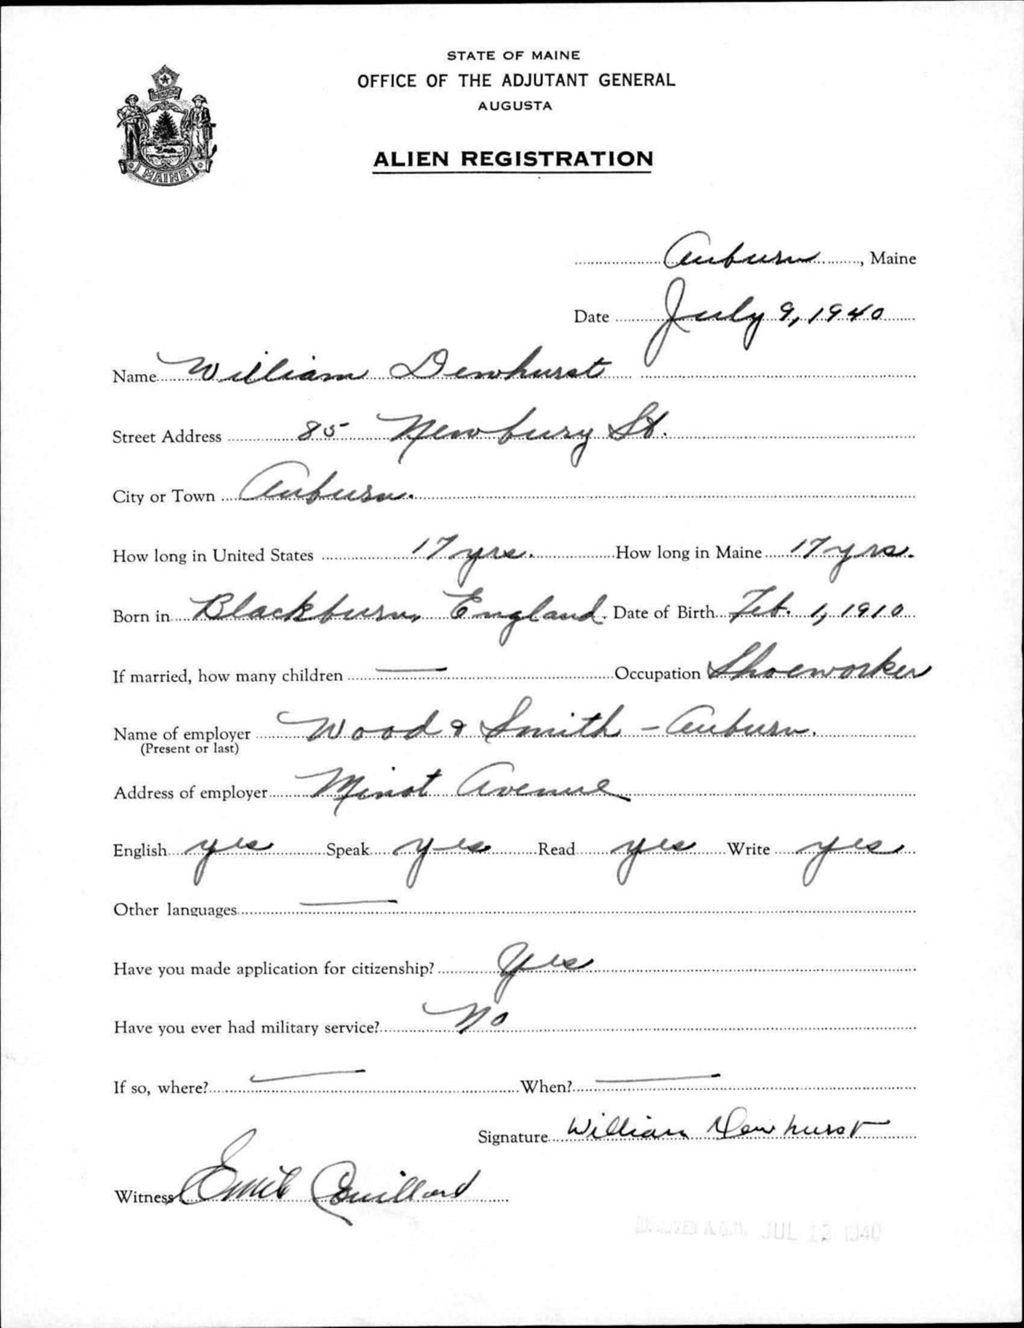 STATE OF MAINE
OFFICE OF THE ADJUTANT GENERAL
AUGUSTA
ALIEN REGISTRATION
MAINE
Auburn, Maine
Date July 9, 1940
Name William Dewhurst
Street Address 85 Newbury St.
City or Town Auburn.
How long in United States 17 yrs. How long in Maine 17 yrs.
Born in Blackburn, England. Date of Birth Feb. 1, 1910
If married, how many children — Occupation Shoeworker
Name of employer Wood & Smith - Auburn.
(Present or last)
Address of employer Minot Avenue
English yes Speak yes Read yes Write yes
Other languages —
Have you made application for citizenship? Yes
Have you ever had military service? No
If so, where? — When? —
Signature William Dewhurst
Witness Emil Couillard
A.G.O. JUL 1940